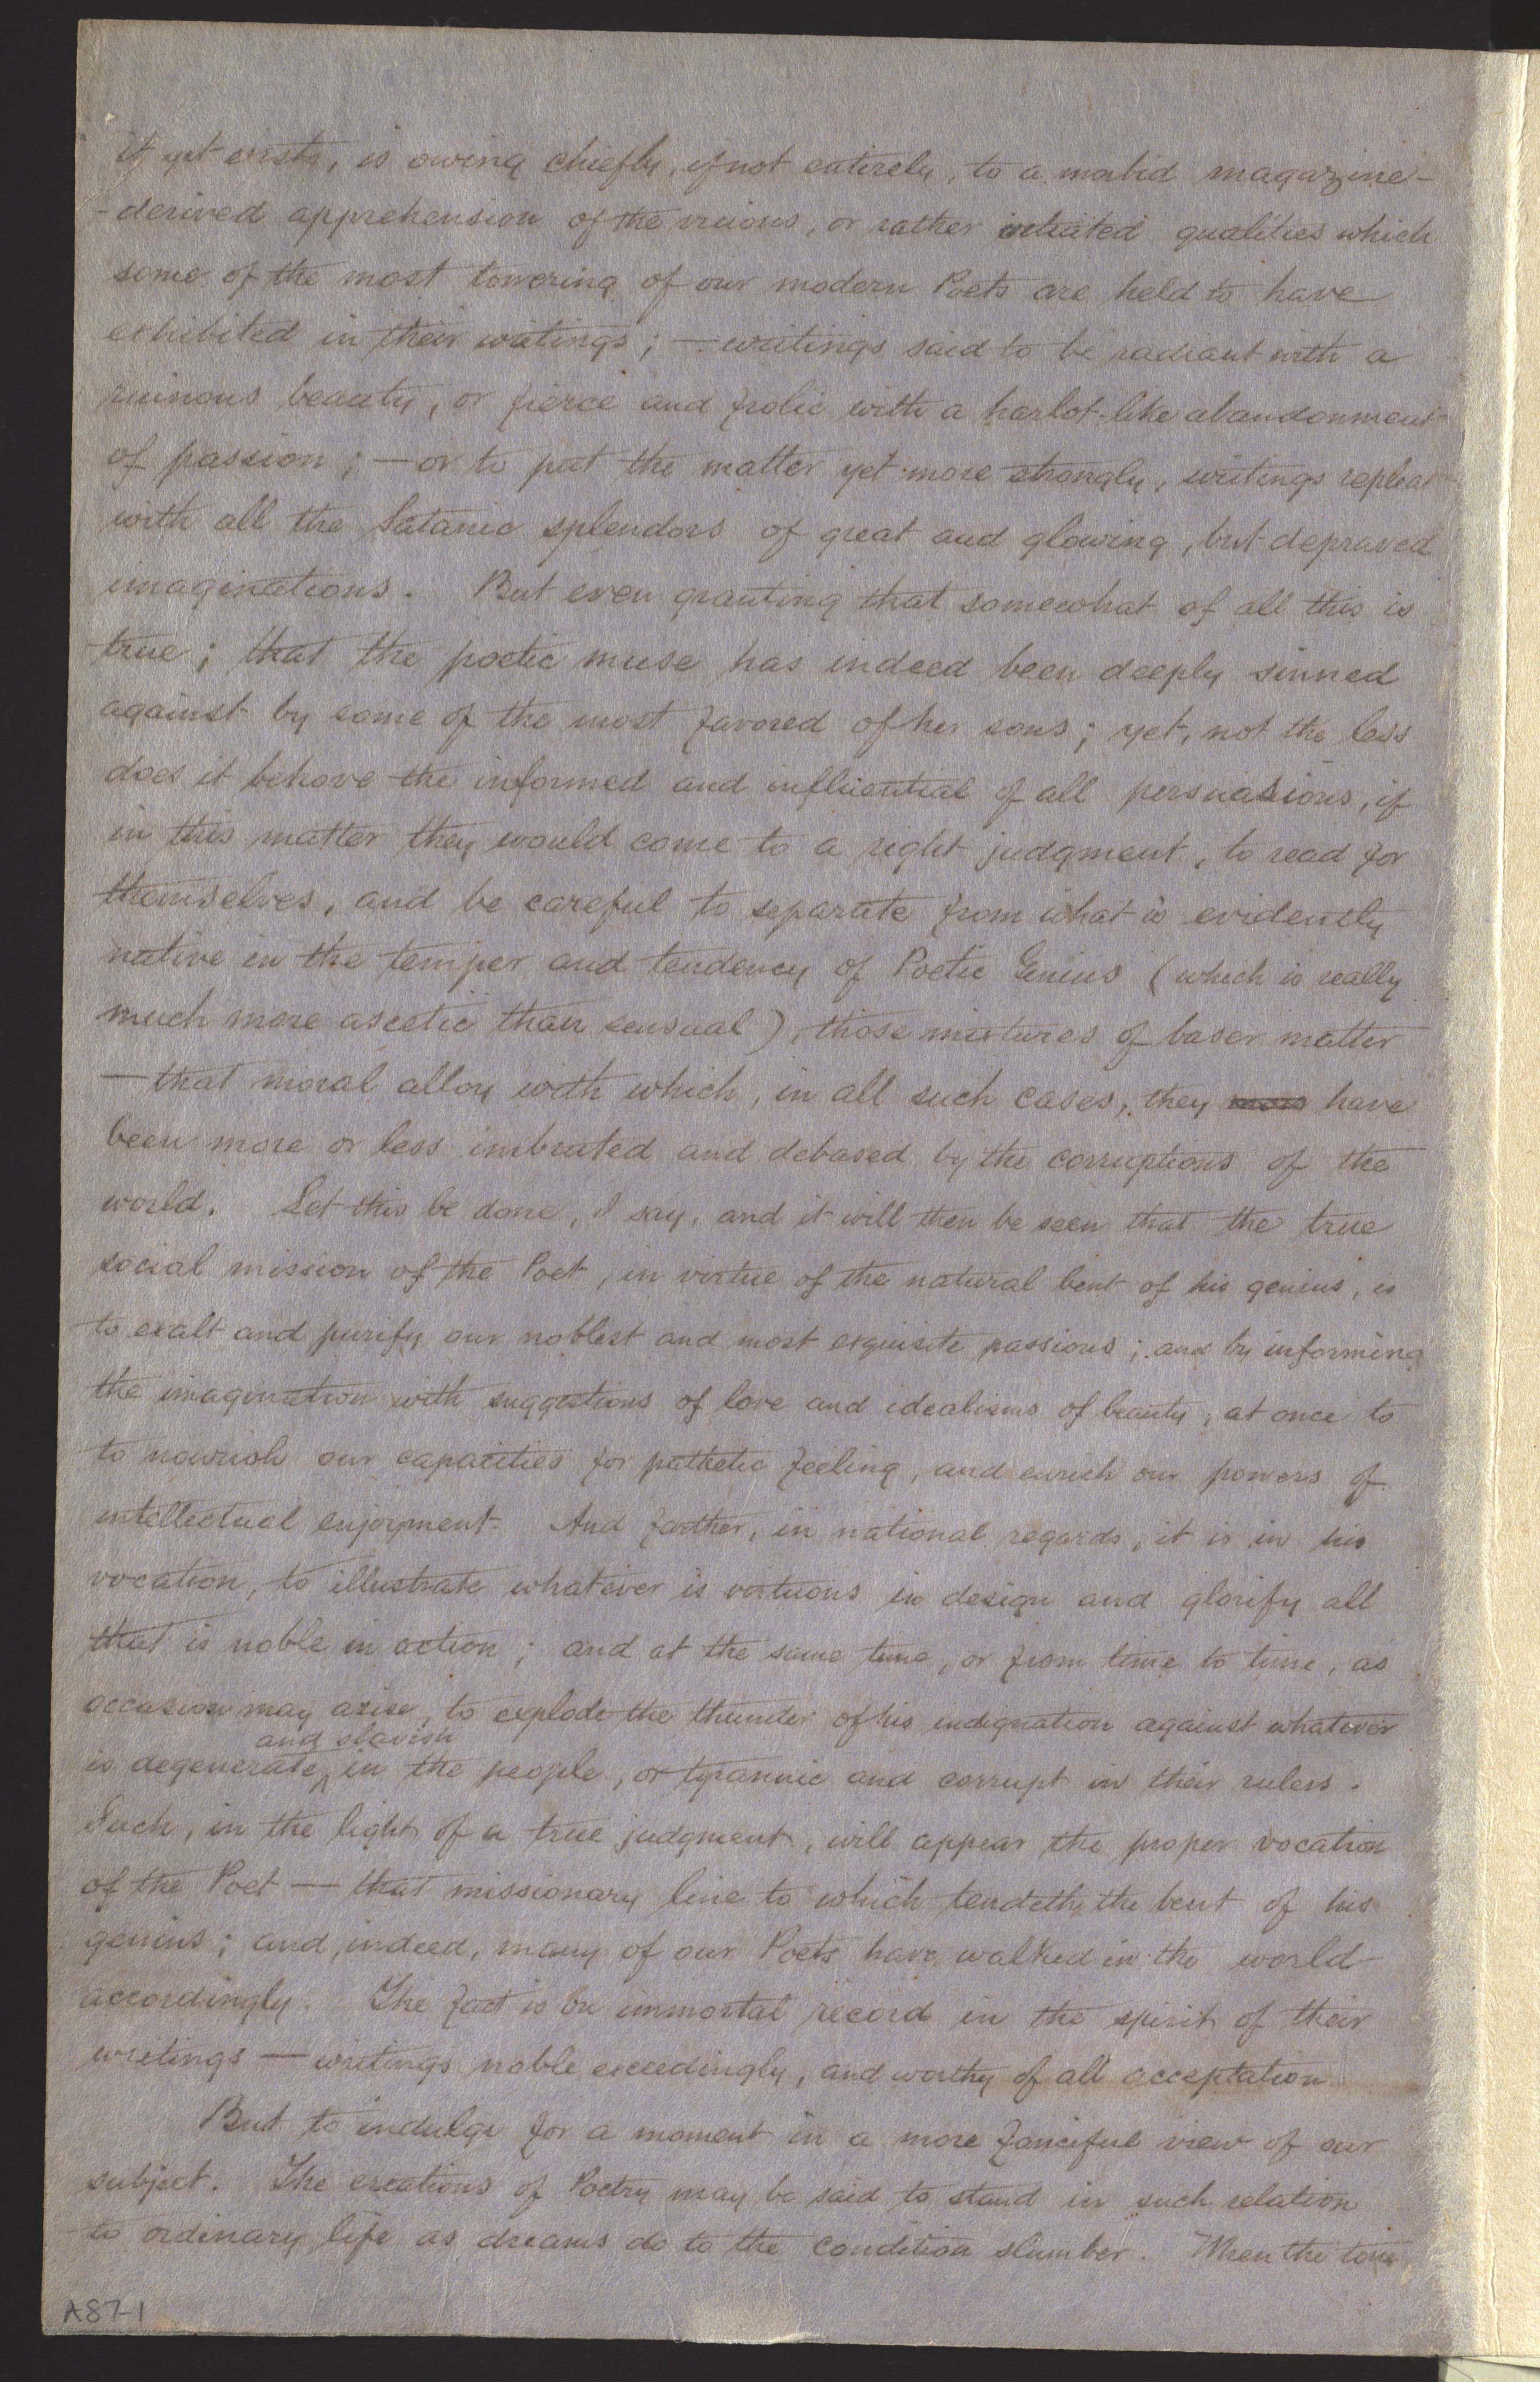 it yet exists, is owing chiefly, if not entirely, to a morbid magazine-
-derived apprehension of the vicious, or rather vitiated qualities which
some of the most towering of our modern Poets are held to have
exhibited in their writings; — writings said to be radiant with a
ruinous beauty, or fierce and frolic with a harlot-like abandonment
of passion; — or to put the matter yet more strongly, writings replete
with all the Satanic splendors of great and glowing, but depraved
imaginations. But even granting that somewhat of all this is
true; that the poetic muse has indeed been deeply sinned
against by some of the most favored of her sons; yet, not the less
does it behove the informed and influential of all persuasions, if
in this matter they would come to a right judgment, to read for
themselves, and be careful to separate from what is evidently
native in the temper and tendency of Poetic Genius (which is really
much more ascetic than sensual), those mixtures of baser matter
— that moral alloy with which, in all such cases, they have
been more or less imbruted and debased by the corruptions of the
world. Let this be done, I say, and it will then be seen that the true
social mission of the Poet, in virtue of the natural bent of his genius, is
to exalt and purify our noblest and most exquisite passions; and by informing
the imagination with suggestions of love and idealisms of beauty, at once to
to nourish our capacities for pathetic feeling, and enrich our powers of
intellectual enjoyment. And farther, in national regards, it is in his
vocation, to illustrate whatever is virtuous in design and glorify all
that is noble in action; and at the same time, or from time to time, as
occasion may arise, to explode the thunder of his indignation against whatever
and slavish
is degenerate ^ in the people, or tyrannic and corrupt in their rulers.
Such, in the light of a true judgment, will appear the proper vocation
of the Poet — that missionary line to which tendeth the bent of his
genius; and, indeed, many of our Poets have walked in the world
accordingly. The fact is on immortal record in the spirit of their
writings — writings noble exceedingly, and worthy of all acceptation.
But to indulge for a moment in a more fanciful view of our
subject. The creations of Poetry may be said to stand in such relation
to ordinary life as dreams do to the condition slumber. When the tone
A87-1